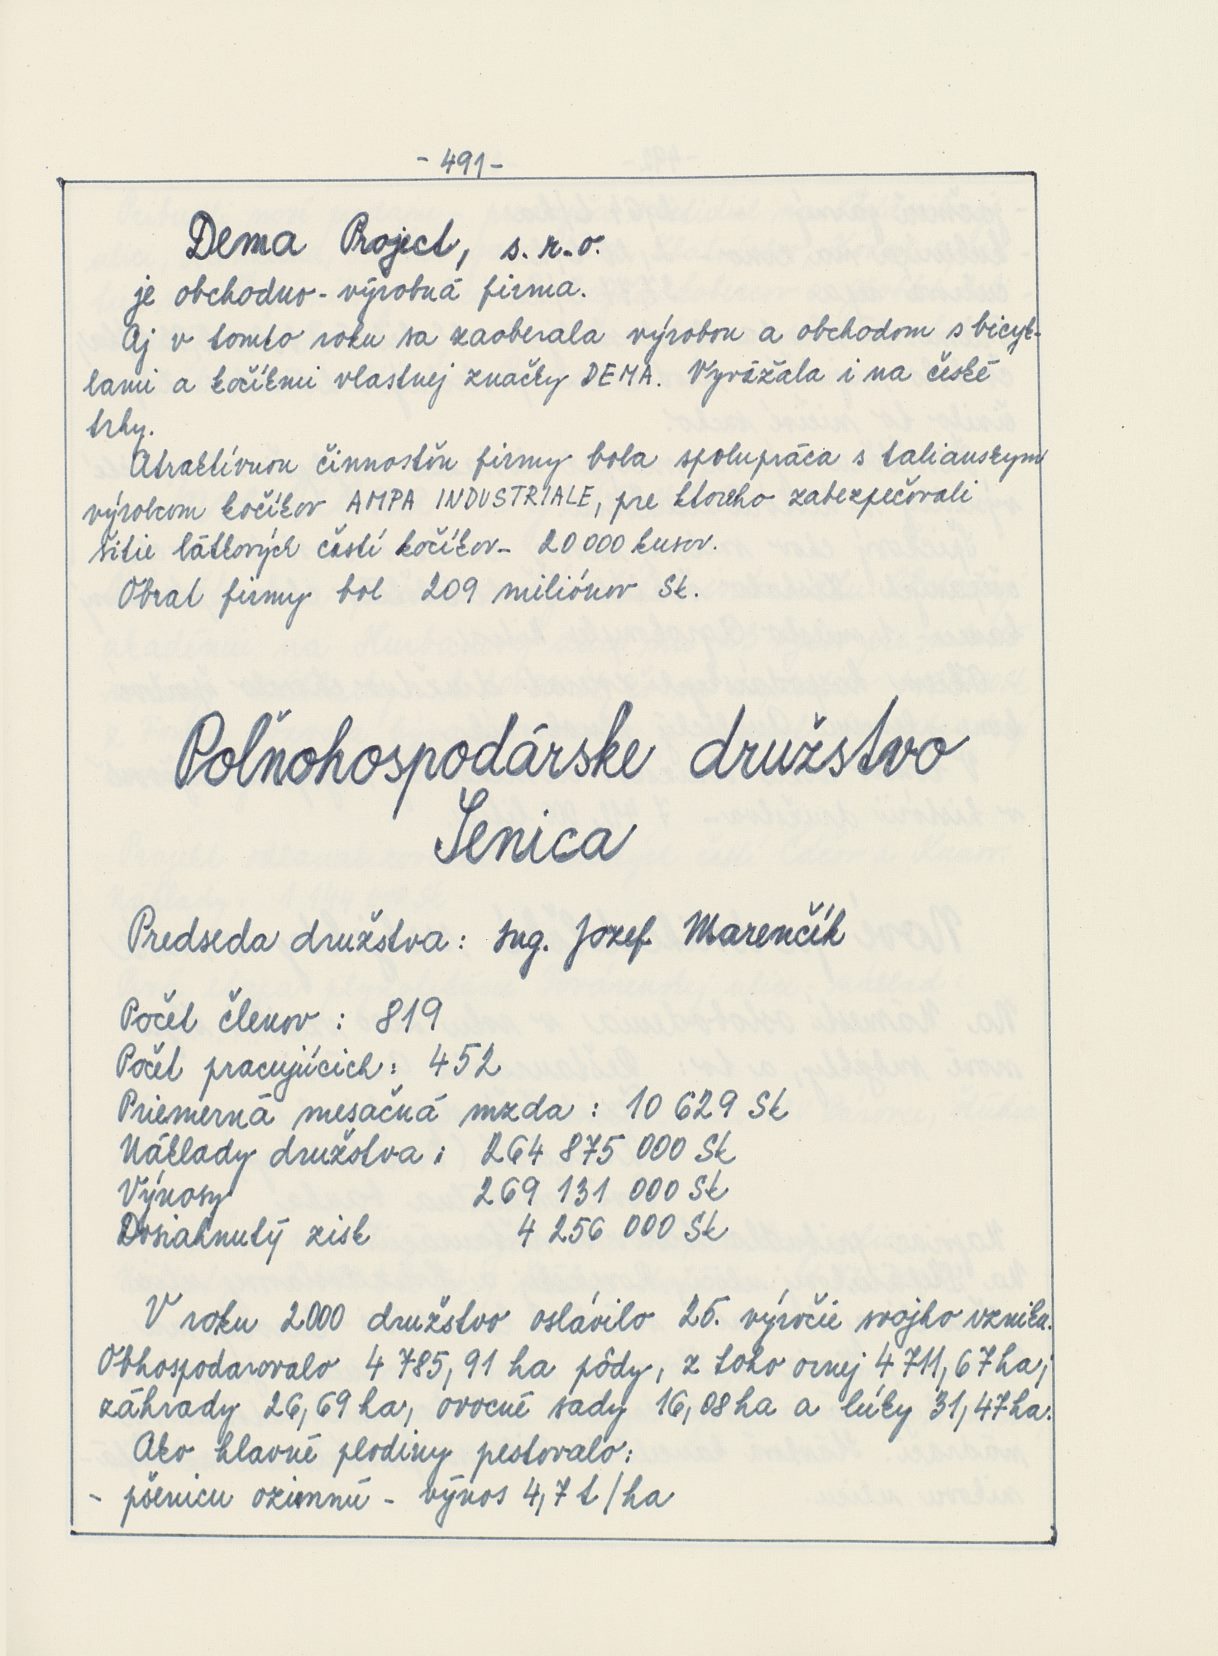 - 491 -
Dema Project, s.r.o.
je obchodno - výrobná firma.
Aj v tomto roku sa zaoberala výrobou a obchodom s bicyk-
lami a kočíkmi vlastnej značky DEMA. Vyvážala i na české
trhy.
Atraktívnou činnosťou firmy bola spolupráca s talianskym
výrobcom kočíkov AMPA INDUSTRIALE, pre ktorého zabezpečovali
šitie látkových častí kočíkov - 20 000 kusov.
Obrat firmy bol 209 miliónov Sk.
Poľnohospodárske družstvo
Senica
Predseda družstva: Ing. Jozef Marenčík
Počet členov : 819
Počet pracujúcich : 452
Priemerná mesačná mzda : 10 629 Sk
Náklady družstva : 264 875 000 Sk
Výnosy 269 131 000 Sk
Dosiahnutý zisk 4 256 000 Sk
V roku 2000 družstvo oslávilo 25. výročie svojho vzniku.
Obhospodarovalo 4 785,91 ha pôdy, z toho ornej 4 711,67 ha,
záhrady 26,69 ha, ovocné sady 16,08 ha a lúky 31,47 ha.
Ako hlavné plodiny pestovalo:
- pšenicu ozimnú - výnos 4,7 t/ha